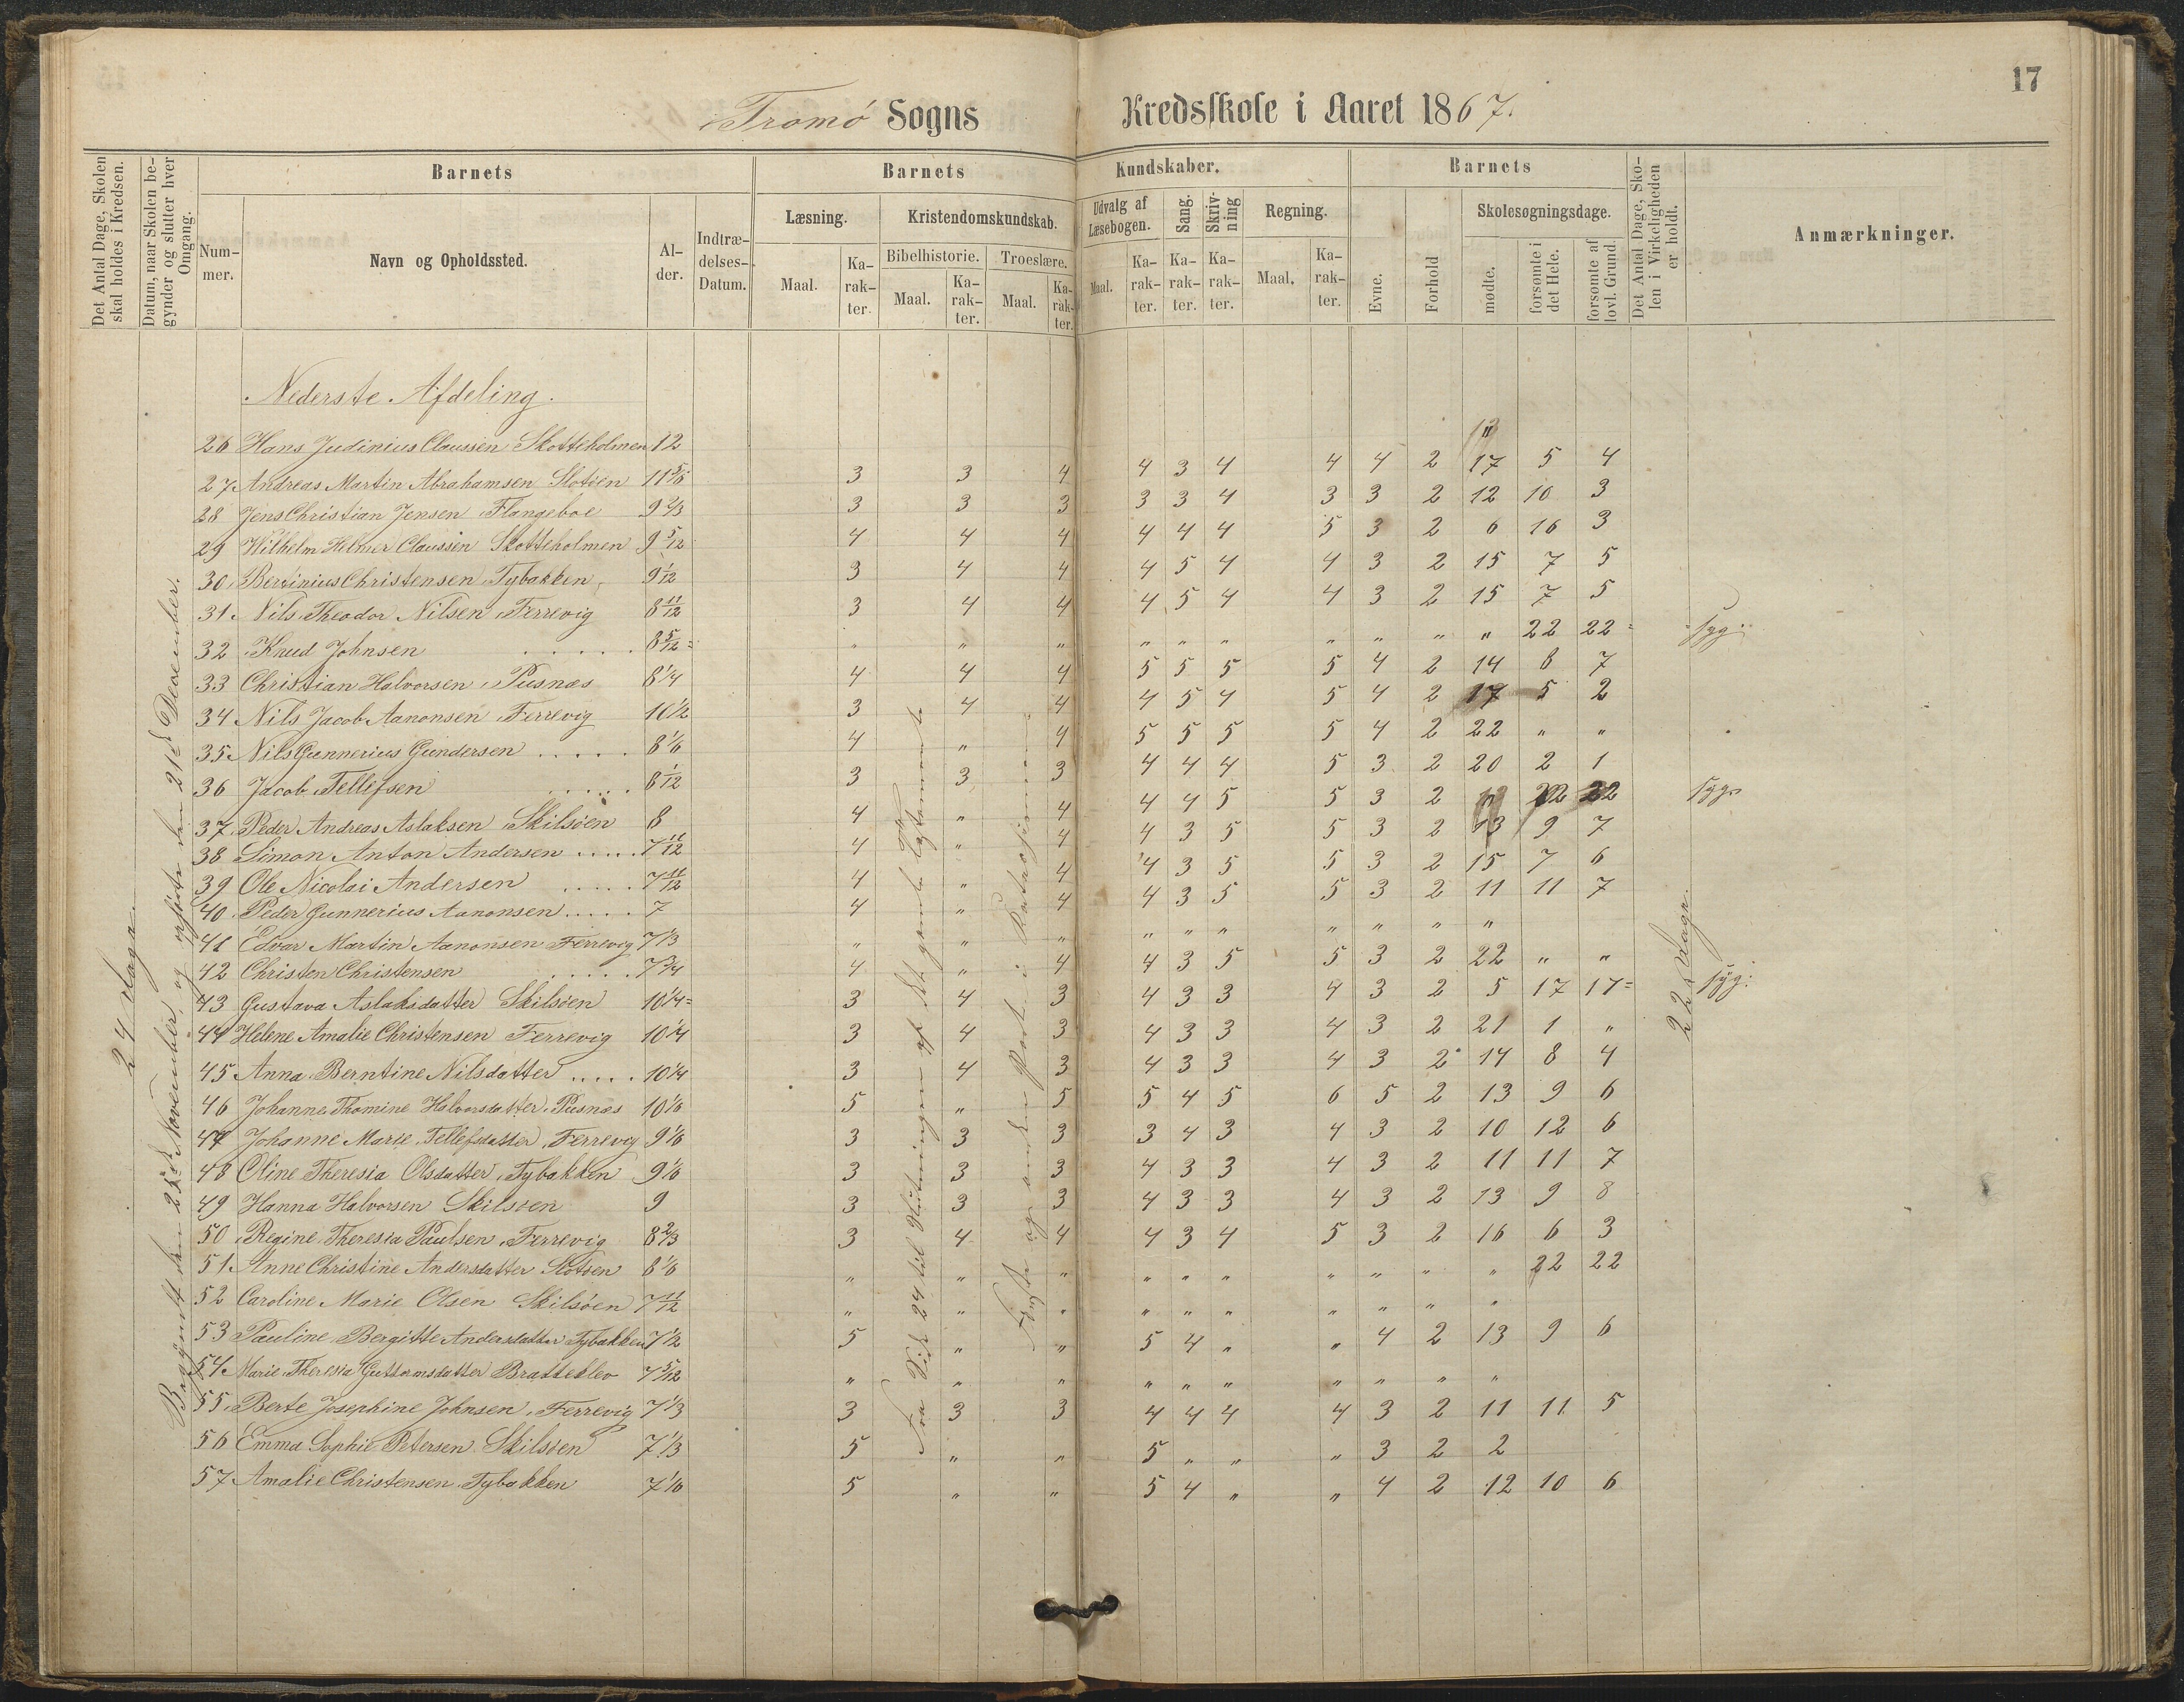 17
Tromö Sogns Kredsskole i Aaret 1867.
Det Antal Dage, Skolen skal holdes i Kredsen.
Datum, naar Skolen begynder og slutter hver Omgang.
Barnets
Barnets Kundskaber.
Barnets
Det Antal Dage, Skolen i Virkeligheden er holdt.
Anmærkninger.
Nummer.
Navn og Opholdssted.
Alder.
Indtrædelses-Datum.
Læsning.
Kristendomskundskab.
Udvalg af Læsebogen.
Sang.
Skrivning
Regning.
Evne.
Forhold
Skolesøgningsdage.
Bibelhistorie.
Troeslære.
Maal. Karakter. Maal. Karakter. Maal. Karakter. Maal. Karakter. Karakter. Karakter. Maal. Karakter.
mødte.
forsømte i det Hele.
forsømte af lovl. Grund.
24 dage.
Begyndt den 25de November, og den 21de December.
Fra Side 24 til Slutningen af det gamle Testamente
Første og anden Part i
22 dage.
Nederste Afdeling.
26 Hans Judinius Claussen Skottholmen 12 "
27 Andreas Martin Abrahamsen Slotöen 11 5/6 3 3 4 4 3 4 4 4 2 17 5 4
28 Jens Christian Jensen Flangeboe 9 2/3 3 3 3 3 3 4 3 3 2 12 10 3
29 Wilhelm Helmer Claussen Skotteholmen 9 5/12 4 4 4 4 4 4 5 3 2 6 16 3
30 Bertinius Christensen Tybakken 9 1/12 3 4 4 4 5 4 4 3 2 15 7 5
31 Nils Theodor Nilsen Ferrevig 8 11/12 3 4 4 4 5 4 4 3 2 15 7 5
32 Knud Johnsen ..... 8 5/12 " " " " " " " " " " 22 22 syg.
33 Christian Halvorsen Pusnæs 8 1/4 4 4 4 5 5 5 5 4 2 14 8 7
34 Nils Jacob Aanonsen Ferrevig 10 1/2 3 4 4 4 5 4 5 4 2 17 5 2
35 Nils Gunnerius Gundersen ..... 8 1/6 4 " 4 5 5 5 5 4 2 22 " "
36 Jacob Tellefsen ..... 8 1/12 3 3 3 4 4 4 5 3 2 20 2 1
37 Peder Andreas Aslaksen Skilsöen 8 4 " 4 4 4 5 5 3 2 22 22 syg.
38 Simon Anton Andersen ..... 7 11/12 4 " 4 4 3 5 5 3 2 13 9 7
39 Ole Nicolai Andersen ..... 7 11/12 4 " 4 4 3 5 5 3 2 15 7 6
40 Peder Gunnerius Aanonsen ..... 7 4 " 4 4 3 5 5 3 2 11 11 7
41 Edvar Martin Aanonsen Ferrevig 7 1/3 " " " " " " " " " "
42 Christen Christensen ..... 7 3/4 4 " 4 4 3 5 5 3 2 22 " "
43 Gustava Aslaksdatter Skilsöen 10 1/4 3 4 3 4 3 3 4 3 2 5 17 17 syg:
44 Helene Amalie Christensen Ferrevig 10 1/4 3 4 3 4 3 3 4 3 2 21 1 "
45 Anna Berntine Nilsdatter ..... 10 1/4 3 4 3 4 3 3 4 3 2 14 8 4
46 Johanne Thomine Halvorsdatter Pusnæs 10 1/6 5 " 5 5 4 5 6 5 2 13 9 6
47 Johanne Marie Tellefsdatter Ferrevig 9 1/6 3 3 3 3 4 3 4 3 2 10 12 6
48 Oline Theresia Olsdatter Tybakken 9 1/6 3 3 3 4 3 3 4 3 2 11 11 7
49 Hanna Halvorsen Skilsöen 9 3 3 3 4 3 3 4 3 2 13 9 8
50 Regine Theresia Paulsen Ferrevig 8 2/3 3 4 4 4 3 4 5 3 2 16 6 3
51 Anne Christine Andersdatter Slotöen 8 1/6 " " " " " " " " " " 22 22
52 Caroline Marie Olsen Skilsöen 7 11/12 " " " " " " " " " "
53 Pauline Bergitte Andersdatter Tybakken 7 1/2 5 " " 5 4 " " 4 2 13 9 6
54 Marie Theresia Guttormsdatter Bratteklev 7 5/12 " " " " " " " " " "
55 Berte Josephine Johnsen Ferrevig 7 1/3 3 3 3 4 4 4 4 3 2 11 11 5
56 Emma Sophie Petersen Skilsöen 7 1/3 5 " " 5 " " " 3 2 2
57 Amalie Christensen Tybakken 7 1/6 5 " " 5 4 " " 4 2 12 10 6